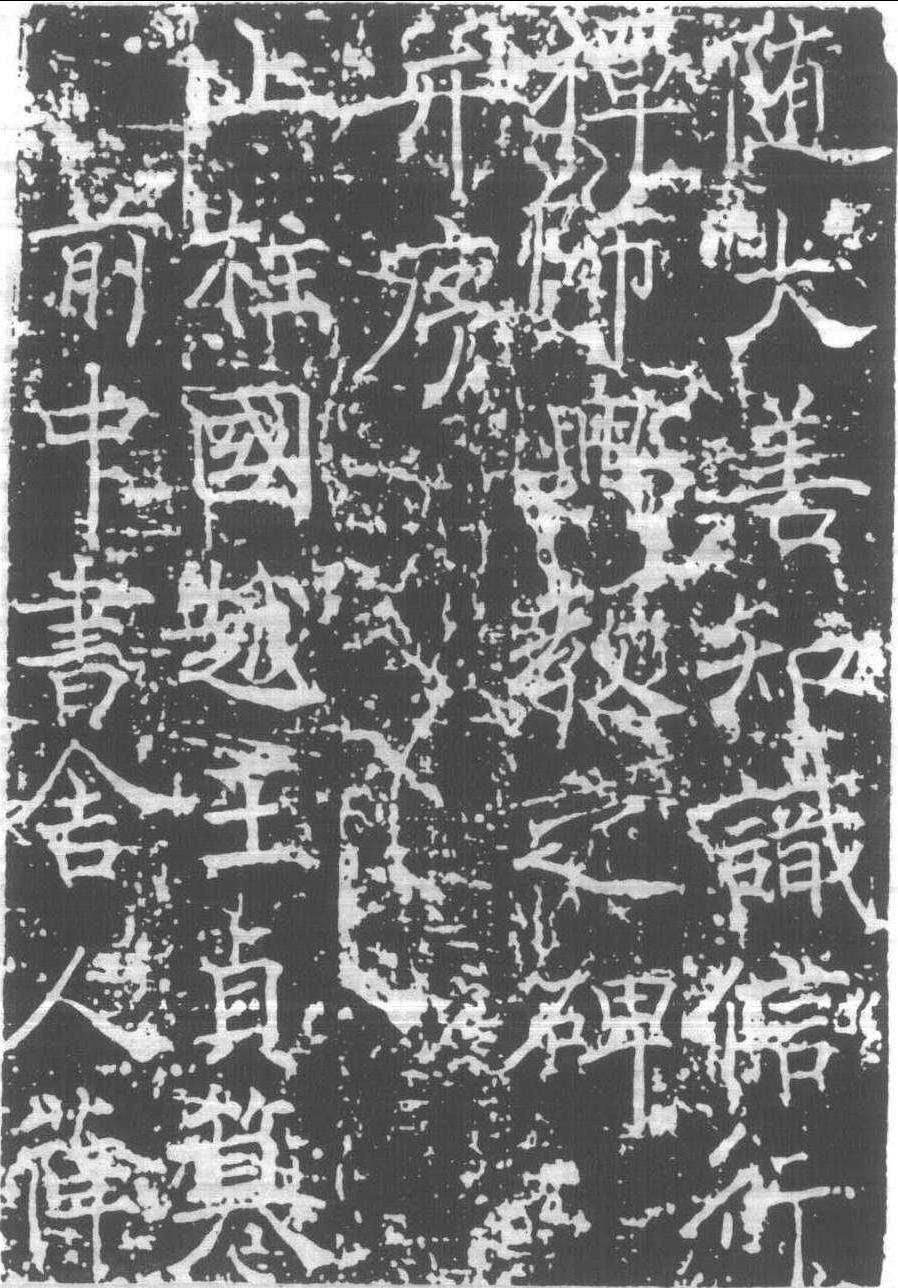 随大善知識信行
禪師興教之碑
并序
上柱國越王貞
前中書舍人薛